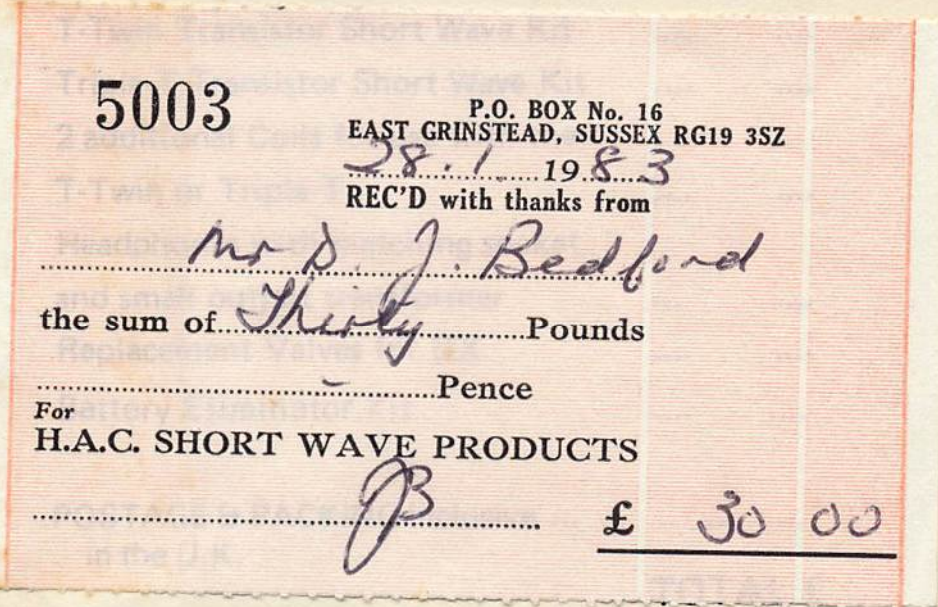 5003
P.O. BOX No. 16
EAST GRINSTEAD, SUSSEX RG19 3SZ
28.1. 1983
REC'D with thanks from
Mr D. J. Bedford
the sum of Thirty Pounds
- Pence
For
H.A.C. SHORT WAVE PRODUCTS
JB
£ 30 00